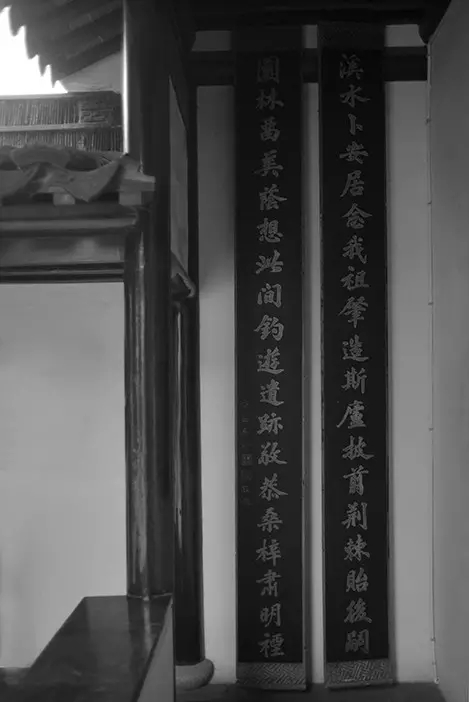 溪水卜安居念我祖肇造斯廬披翦荊棘貽後嗣
園林留美蔭想此間釣遊遺跡敬恭桑梓肅明禋